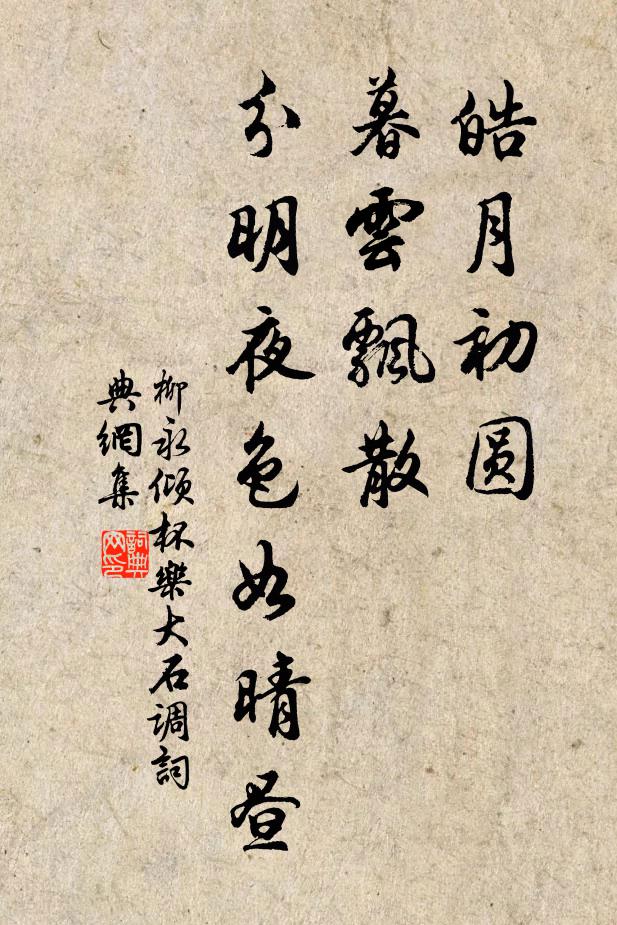 皓月初圆
暮雲飄散
分明夜色如晴昼
柳永傾杯樂大石调詞
典網集
詞典
网印